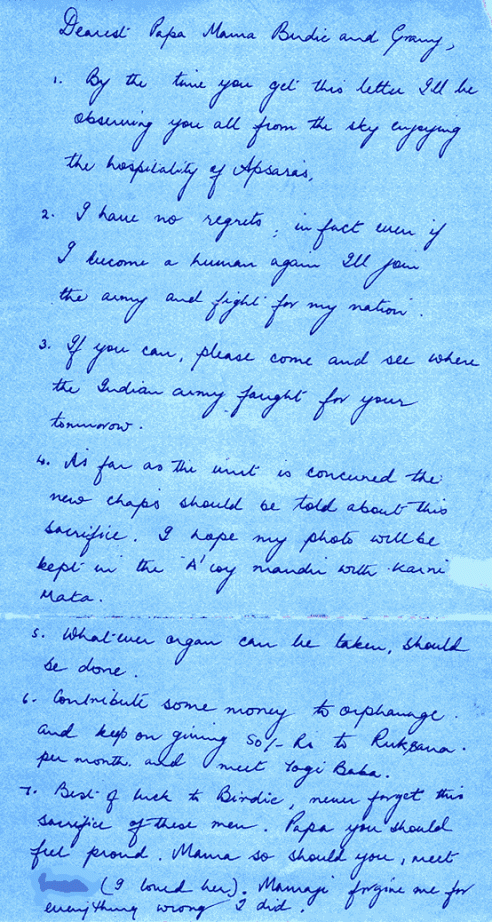 Dearest Papa Mama Birdie and Granny,
1. By the time you get this letter I'll be
observing you all from the sky enjoying
the hospitality of Apsaras.
2. I have no regrets, in fact even if
I become a human again I'll join
the army and fight for my nation.
3. If you can, please come and see where
the Indian army fought for your
tomorrow.
4. As far as the unit is concerned the
new chaps should be told about this
sacrifice. I hope my photo will be
kept in the 'A' coy mandir with Karni
Mata.
5. Whatever organ can be taken, should
be done.
6. Contribute some money to orphanage.
and keep on giving 50/- Rs to Ruksana.
per month and meet Yogi Baba.
7. Best of luck to Birdie, never forget this
sacrifice of these men. Papa you should
feel proud. Mama so should you, meet
(I loved her). Mamaji forgive me for
everything wrong I did.